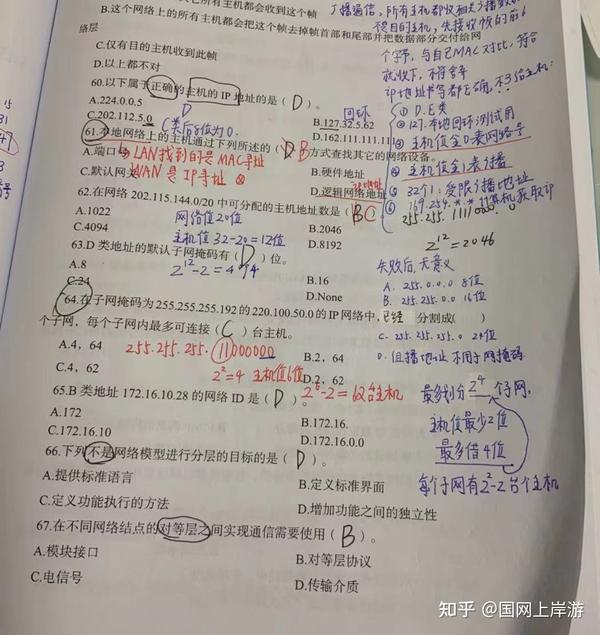 所有主机都会收到这个帧
B.这个网络上的所有主机都会把这个帧去掉帧首部和尾部并把数据部分交付给网
络层
C.仅有目的主机收到此帧
D.以上都不对
60.以下属于正确的主机的 IP 地址的是( D )。
A.224.0.0.5
B.127.32.5.62
回环
C.202.112.5.0
D.162.111.111.111
C类后8位为0.
61.本地网络上的主机通过下列所述的( B )方式查找其它的网络设备。
A.端口
B.硬件地址
LAN找到的是MAC寻址
C.默认网关
D.逻辑网络地址
WAN 是 IP寻址
62.在网络 202.115.144.0/20 中可分配的主机地址数是( C )
A.1022
B.2046
网络值20位
C.4094
D.8192
主机值 32-20=12位
63.D 类地址的默认子网掩码有( D )位。
A.8
B.16
2^12-2=4094
C.24
D.None
64.在子网掩码为 255.255.255.192 的 220.100.50.0 的 IP 网络中,已经 分割成( )
个子网,每个子网内最多可连接( C )台主机。
A.4,64
B.2,64
255.255.255.11000000
C.4,62
D.2,62
2^2=4 主机值6位
2^6-2=62台主机
65.B 类地址 172.16.10.28 的网络 ID 是( D )。
A.172
B.172.16.
C.172.16.10
D.172.16.0.0
66.下列不是网络模型进行分层的目标的是( D )。
A.提供标准语言
B.定义标准界面
C.定义功能执行的方法
D.增加功能之间的独立性
67.在不同网络结点的对等层之间实现通信需要使用( B )。
A.模块接口
B.对等层协议
C.电信号
D.传输介质
广播通信,所有主机都
目的主机,先接收帧的前6
个字节,与自己MAC对比,符合
收下,不符舍弃
① D.E类
② 127.本地回环测试用
③ 主机值全0表网络号
④ 主机值全1表广播
⑤ 32个1:受限广播地址
⑥ 169.254.*.*
255.255.11110000.0
2^12=2046
失败后,无意义
A. 255.0.0.0 8位
B. 255.255.0.0 16位
C. 255.255.255.0 24位
D. 组播地址不用子网掩码
最多划分2^4个子网.
主机值最少2位
最多借4位
每个子网有2^2-2台个主机
知乎 @国网上岸游